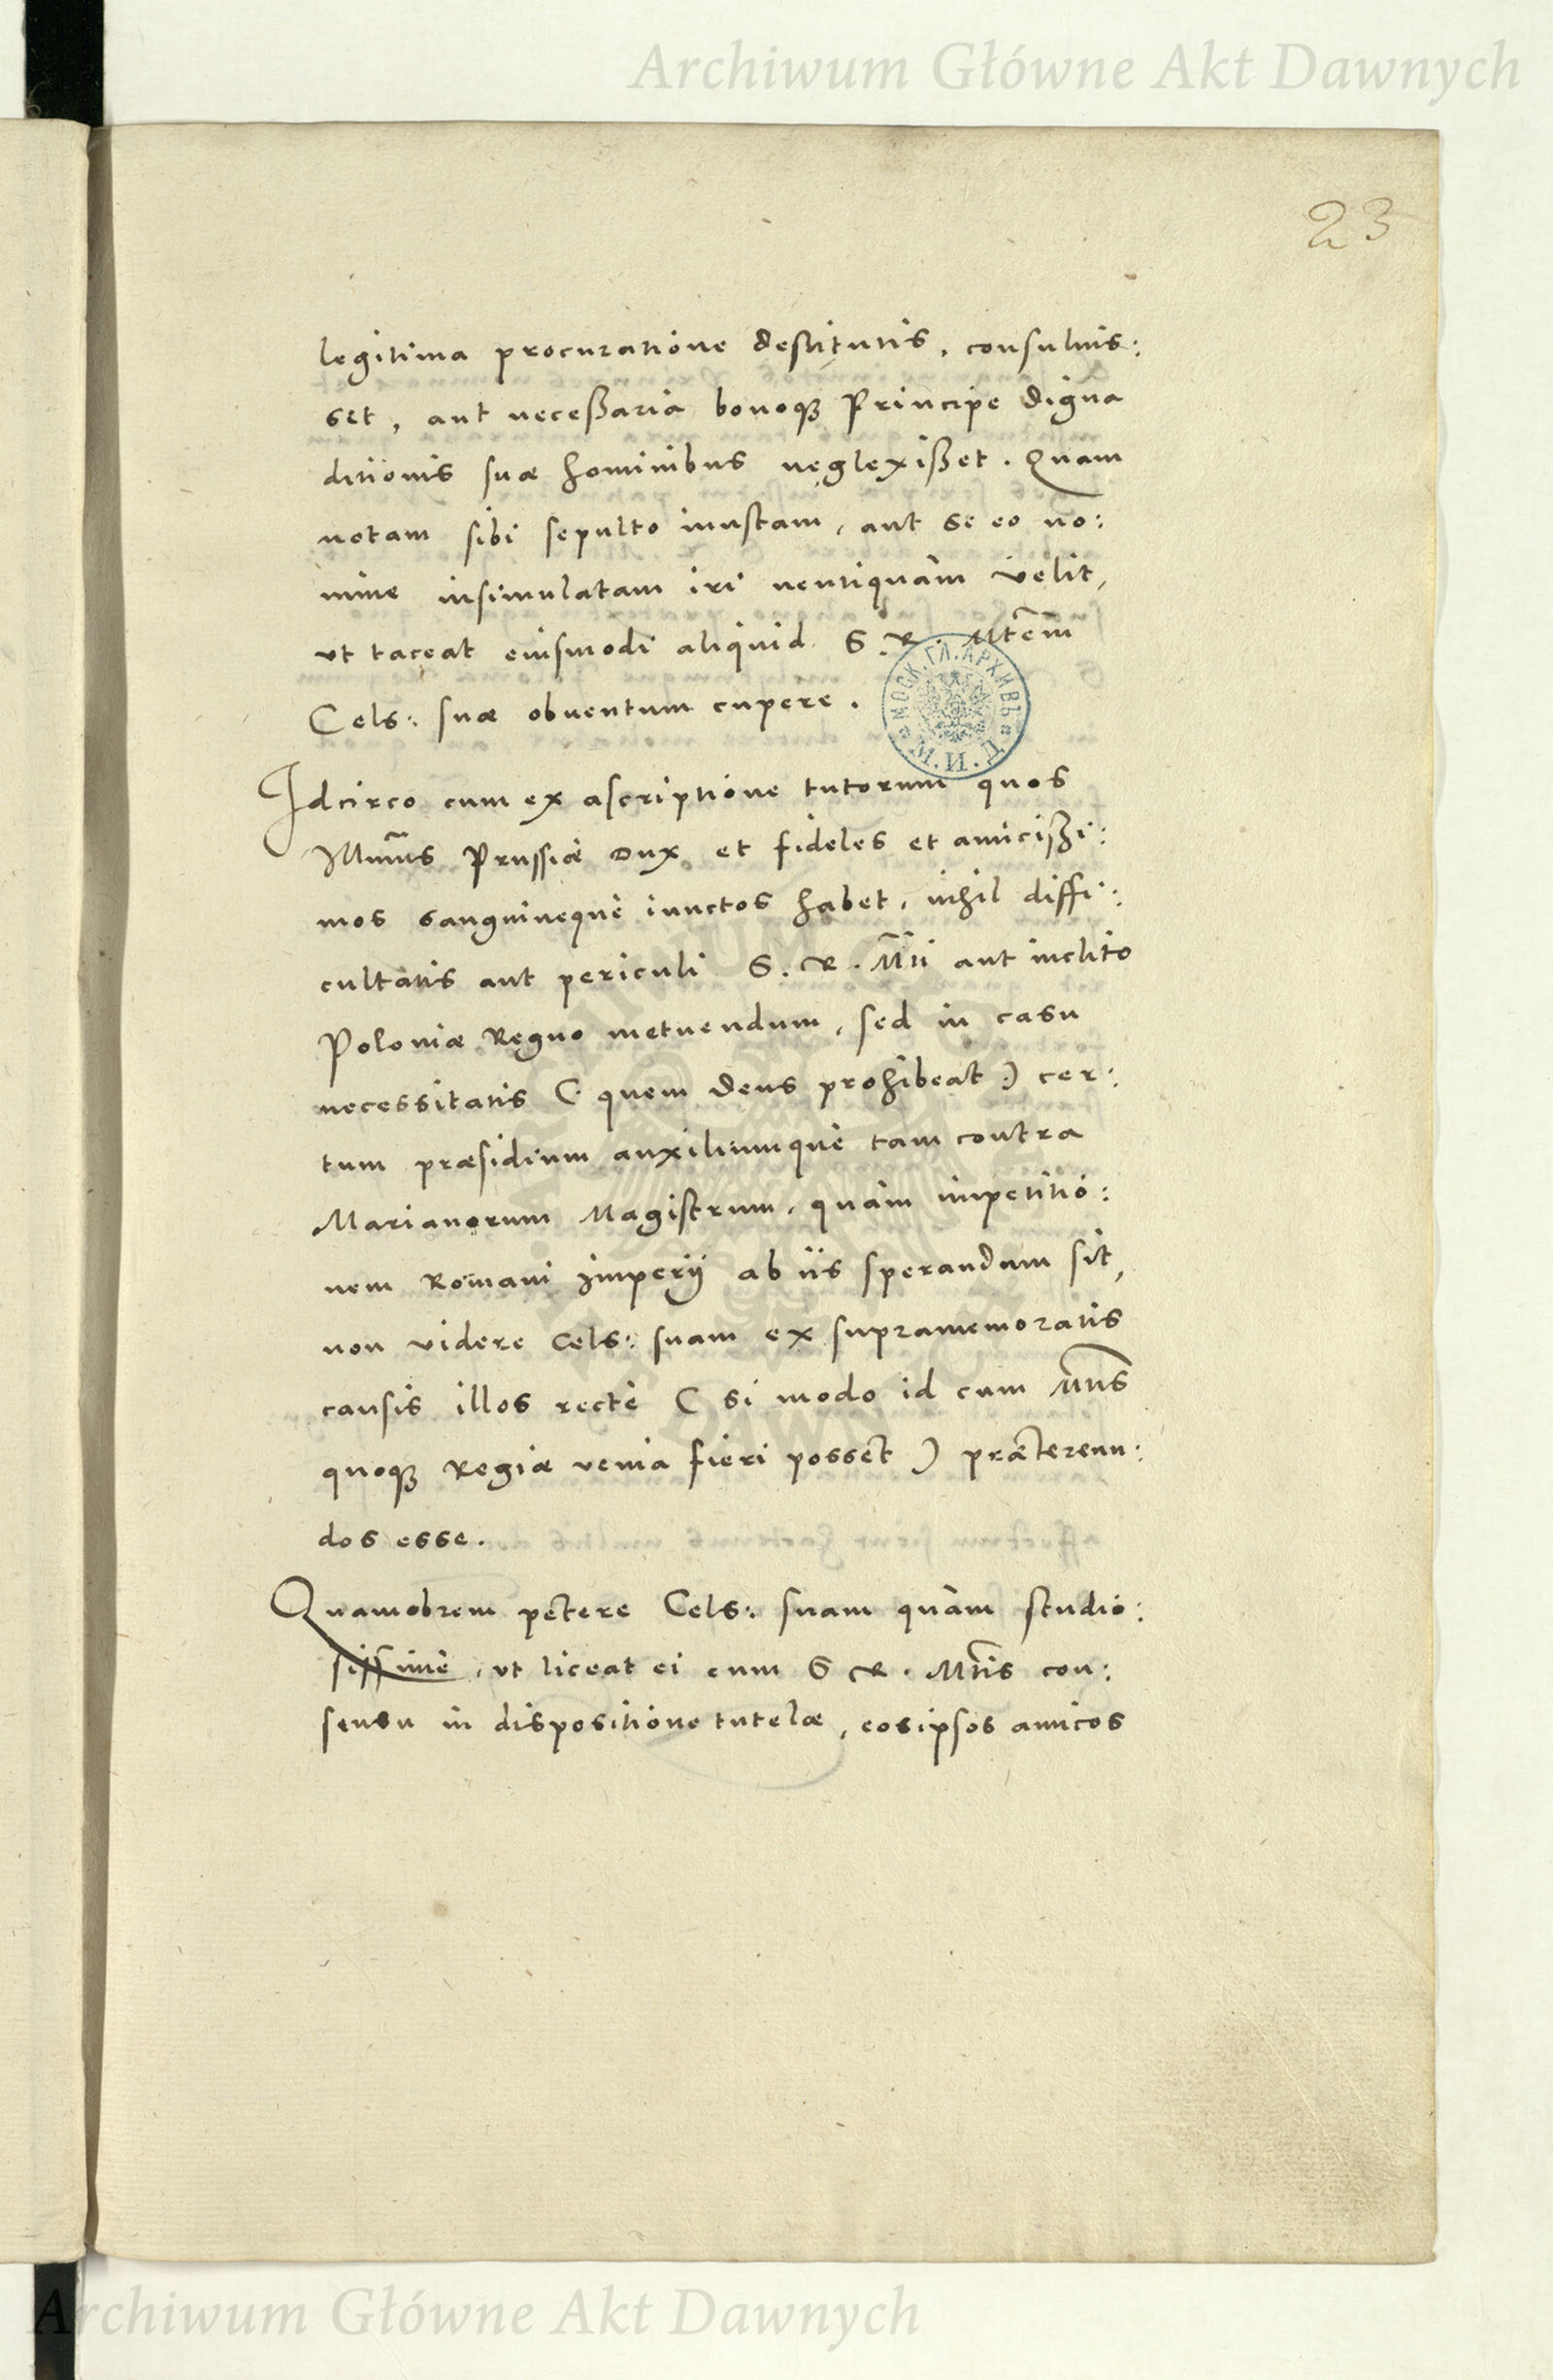 Archiwum Główne Akt Dawnych
23
legitima procuratione destitutis, consuluis:
set, aut necessaria bonoq3 Principe digna
ditionis suæ hominibus neglexisset. Quam
notam sibi sepulto inustam, aut se eo no:
mine insimulatam iri neutiquàm velit,
vt taceat eiusmodi aliquid S. R. Mtem
Cels: suæ obuentum cupere.
МОСК. ГЛ. АРХИВЪ М. И. Д.
Idcirco cum ex ascriptione tutorum quos
Illmus Prussiæ Dux et fideles et amicissi:
mos sanguineque iunctos habet, nihil diffi:
cultatis aut periculi S. R. Mti aut inclito
Poloniæ Regno metuendum, sed in casu
necessitatis ( quem deus prohibeat ) cer:
tum præsidium auxiliumque tam contra
Marianorum Magistrum, quàm impetitio:
nem Romani Imperij ab iis sperandum sit,
non videre Cels: suam ex supramemoratis
causis illos rectè ( si modo id cum Mtis
quoq3 Regiæ venia fieri posset ) prætereun:
dos esse.
Quamobrem petere Cels: suam quàm studio:
sissimè, vt liceat ei cum S R. Mtis con:
sensu in dispositione tutelæ, eosipsos amicos
Archiwum Główne Akt Dawnych